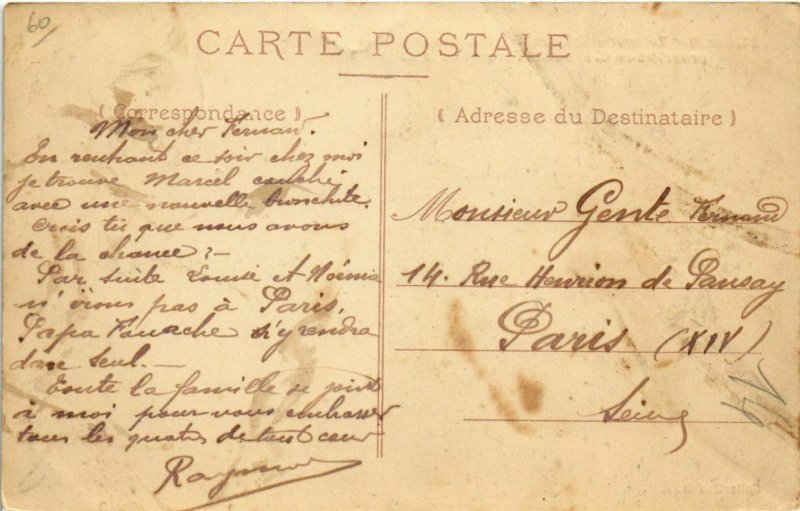 60
CARTE POSTALE
( Correspondance )
( Adresse du Destinataire )
Mon cher Fernand.
En rentrant ce soir chez moi
je trouve Marcel couché
avec une nouvelle bronchite.
Crois tu que nous avons
de la chance ? -
Par suite Louise et Noémie
n'irons pas à Paris,
Papa s'y rendra
donc seul. -
Toute la famille se joint
à moi pour vous embrasser
tous les quatre de tout cœur
Raymond
Monsieur Gente Fernand
14. Rue Henrion de Pansay
Paris (XIV)
Seine
14